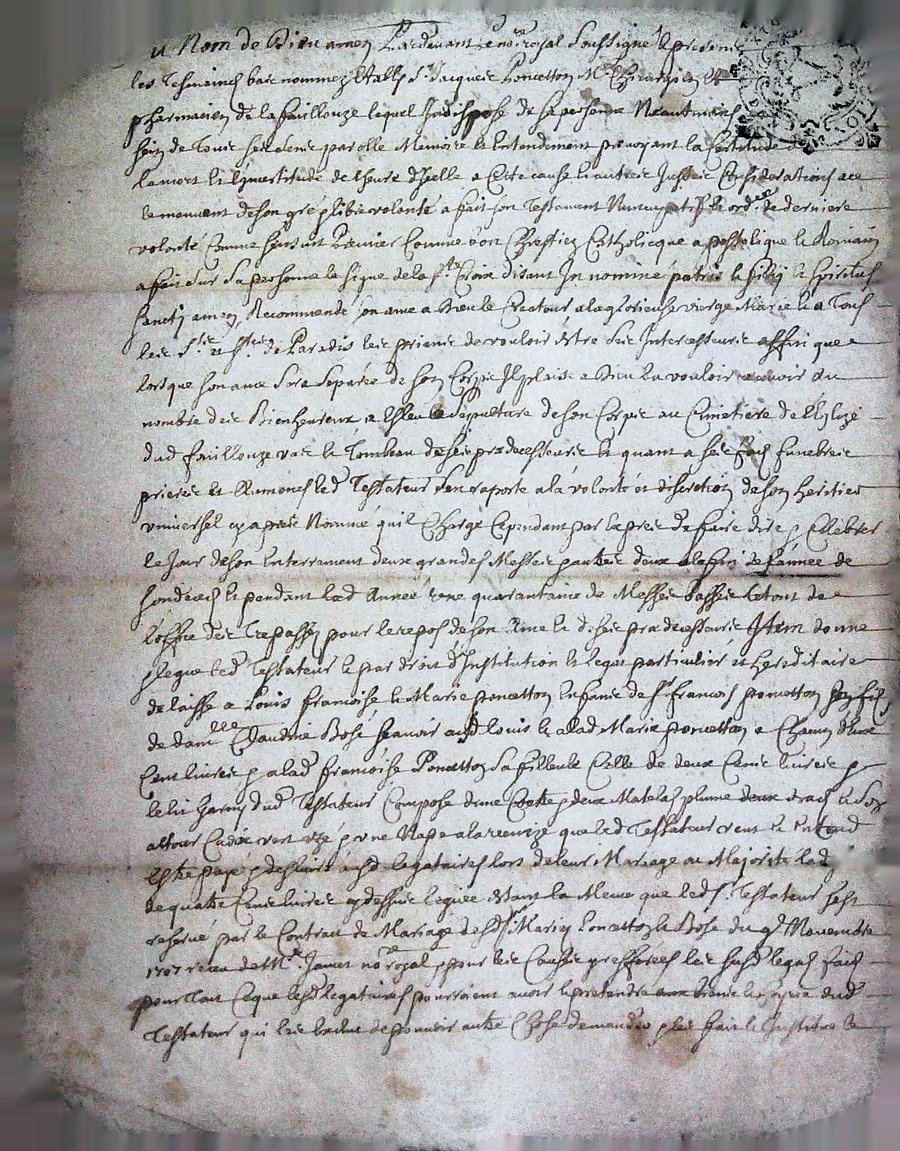 u Nom de Dieu amen Pardevant le no.re royal soussigné & présence
les Tesmoings bas nommez estably s.r Jacques Poncetton M.e Chirurgien et
pharmacien de la faillouze lequel Indispose de sa personne Neantmoins
sain de tous ses sens parolle Memoire & Entendement prevoyant la Certitude de
la mort & l'Incertitude de l'heure d'Icelle a Cette cause & autres Justes Considerations a ce
le mouvant de son gré & libre volonté a fait son Testament Nuncupatif & ord.re de derniere
volonté Comme sensuit Premier Comme bon Chrestien Catholicque apostolique & Romain
a fait sur sa personne le signe de la S.te Croix disant In nomine patris & filij & Spiritus
Sancti amen, Recommandé son ame a Dieu le Createur a la glorieuse vierge Marie & a Tous
les S.ts et S.tes de Paradis les priant de vouloir Estre ses Intercesseurs affin que
lorsque son ame sera separée de son Corps Il plaise a Dieu la vouloir recevoir au
nombre des Bienheureux a Esleu sa sepulture de son Corps au Cimetiere de l'Eglize
dud faillouze vas & Tombeau de ses predecesseurs & quant a ses frais funebres
prieres & Aumones led Testateur s'en raporte a la volonté et discretion de son heritier
vniversel cy apres Nommé qu'il Charge Cependant par Expres de faire dire & Celebrer
le Jour de son Enterrement deux grandes Messes pareilles deux a la fin de l'année de
son deces & pendant lad Année vne quarantaine de Messes basses le tout de
l'office des Trepassez pour le repos de son Ame & de ses predecesseurs Item donne
& legue led Testateur & par droit d'Institution & legat particulier et hereditaire
delaisse a Louis francoise & Marie poncetton Enfants de s.r francois poncetton son fils
de dam.lle Claudine Bosé scavoir aud louis & a lad Marie poncetton a Chacun d'eux
Cent livres & a lad francoise Poncetton sa filleule Celle de deux Cents livres &
le lit Garny dud Testateur Compose d'une Coette & deux Matelas plume deux draps & son
attour Cadix vert vzé & vne Nape a la venize que led Testateur veut & Entend
Estre payé & delivré ausd legataires lors de leur Mariage ou Majorité lad
de quatre Cents livres cy dessus leguée Estant la Meme que led s.r Testateur sest
reservé par le Contrat de Mariage desd s.rs Mariez Poncetton & Bosé du 9.e Novembre
1707 receu de M.e Jamet no.re royal & pour les Causes & res les susd legats faits
pour Tout Ce que lesd legataires pourroient avoir & pretendre aux biens & hoyrie dud
Testateur qui les Exclut de pouvoir autre Chose demander & les fait & Institue &